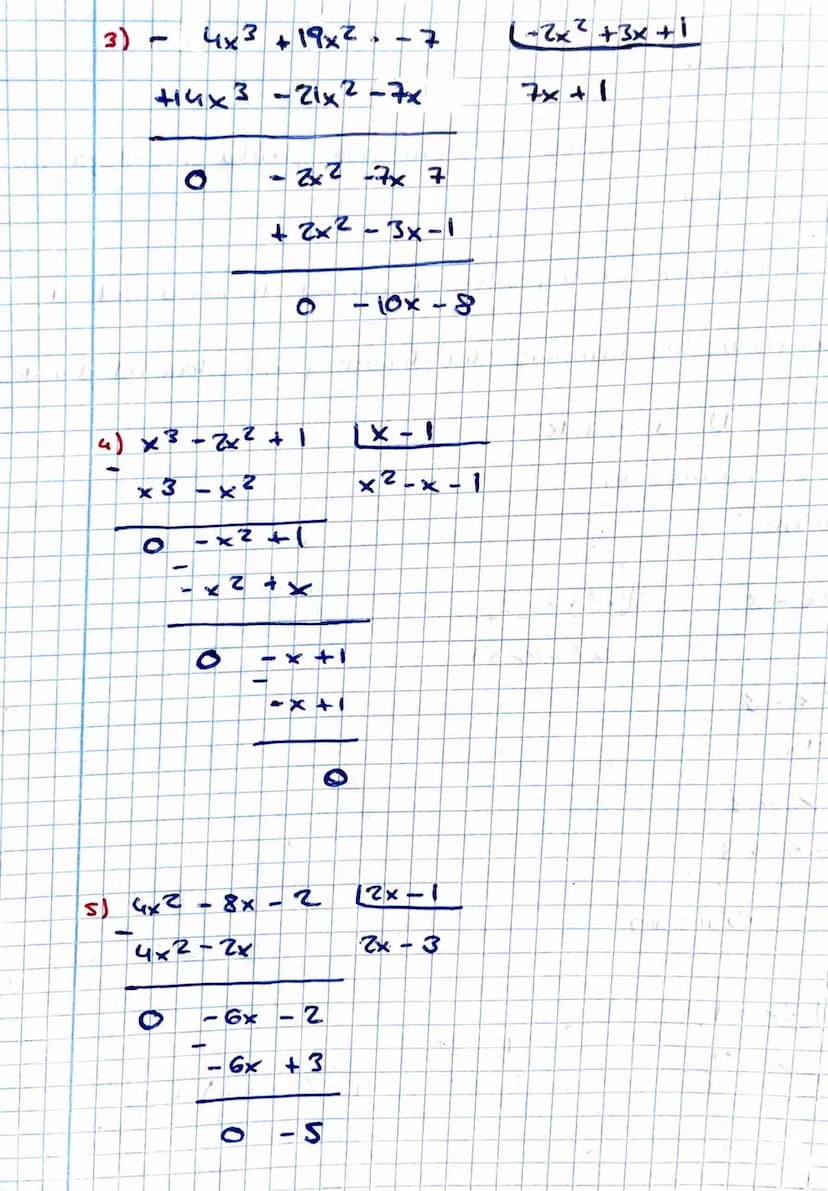 3) - 4x³ + 19x² · - 7 | -2x² + 3x + 1
+14x³ - 21x² - 7x 7x + 1
0 - 2x² - 7x 7
+ 2x² - 3x - 1
0 - 10x - 8
4) x³ - 2x² + 1 | x - 1
- x³ - x² x² - x - 1
0 - x² + 1
- - x² + x
0 - x + 1
- - x + 1
0
5) 4x² - 8x - 2 | 2x - 1
- 4x² - 2x 2x - 3
0 - 6x - 2
- - 6x + 3
0 - 5